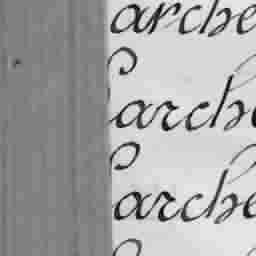 arche
arche
arche